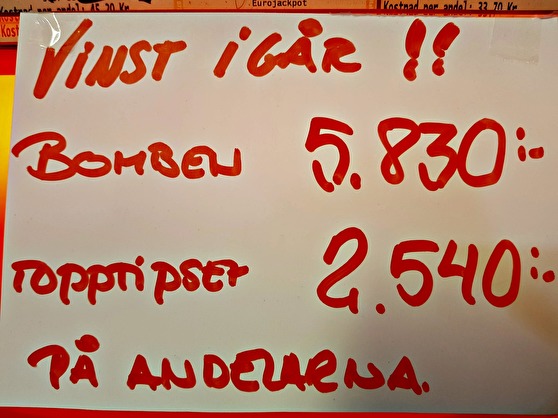 Kostnad per andel: 45,20 Kr
Eurojackpot
Kostnad per andel: 33,70 Kr
VINST IGÅR !!
BOMBEN 5.830:-
TOPPTIPSET 2.540:-
PÅ ANDELARNA.